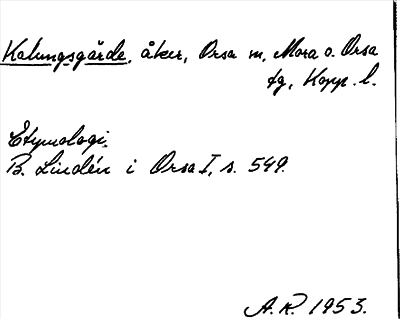 Kalungsgärde, åker, Orsa sn, Mora o. Orsa
tg, Kopp. l.
Etymologi.
B. Lindén i Orsa I, s. 549.
A.R. 1953.